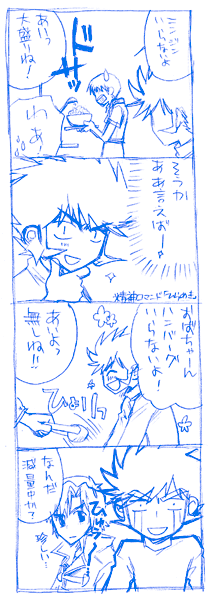 ニンジン
いらないよ
ドサッ
あいっ
大盛りね!
わぁ
そうか
ああ言えばー
精神コマンド「ひらめき
おばちゃーん
ハンバーグ
いらないよ!
あいよっ
無しね!!
ひょいっ
なんだ
減量中かて
珍しい…